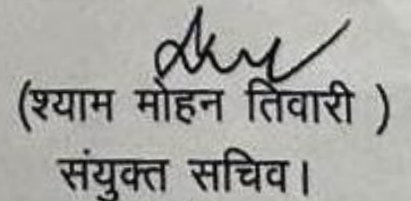 (श्याम मोहन तिवारी )
संयुक्त सचिव।